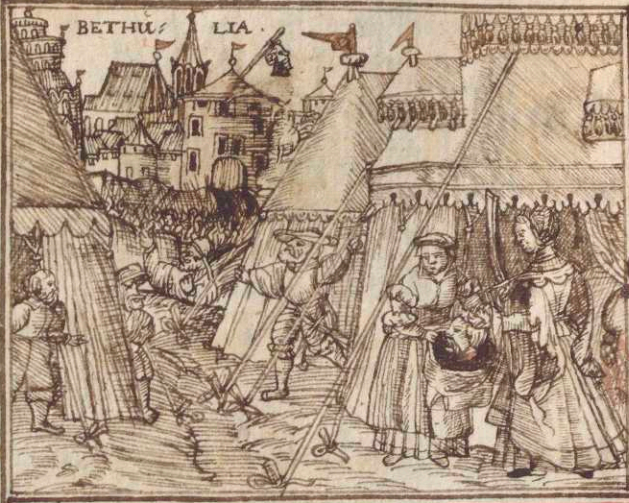 BETHU⸗ LIA.